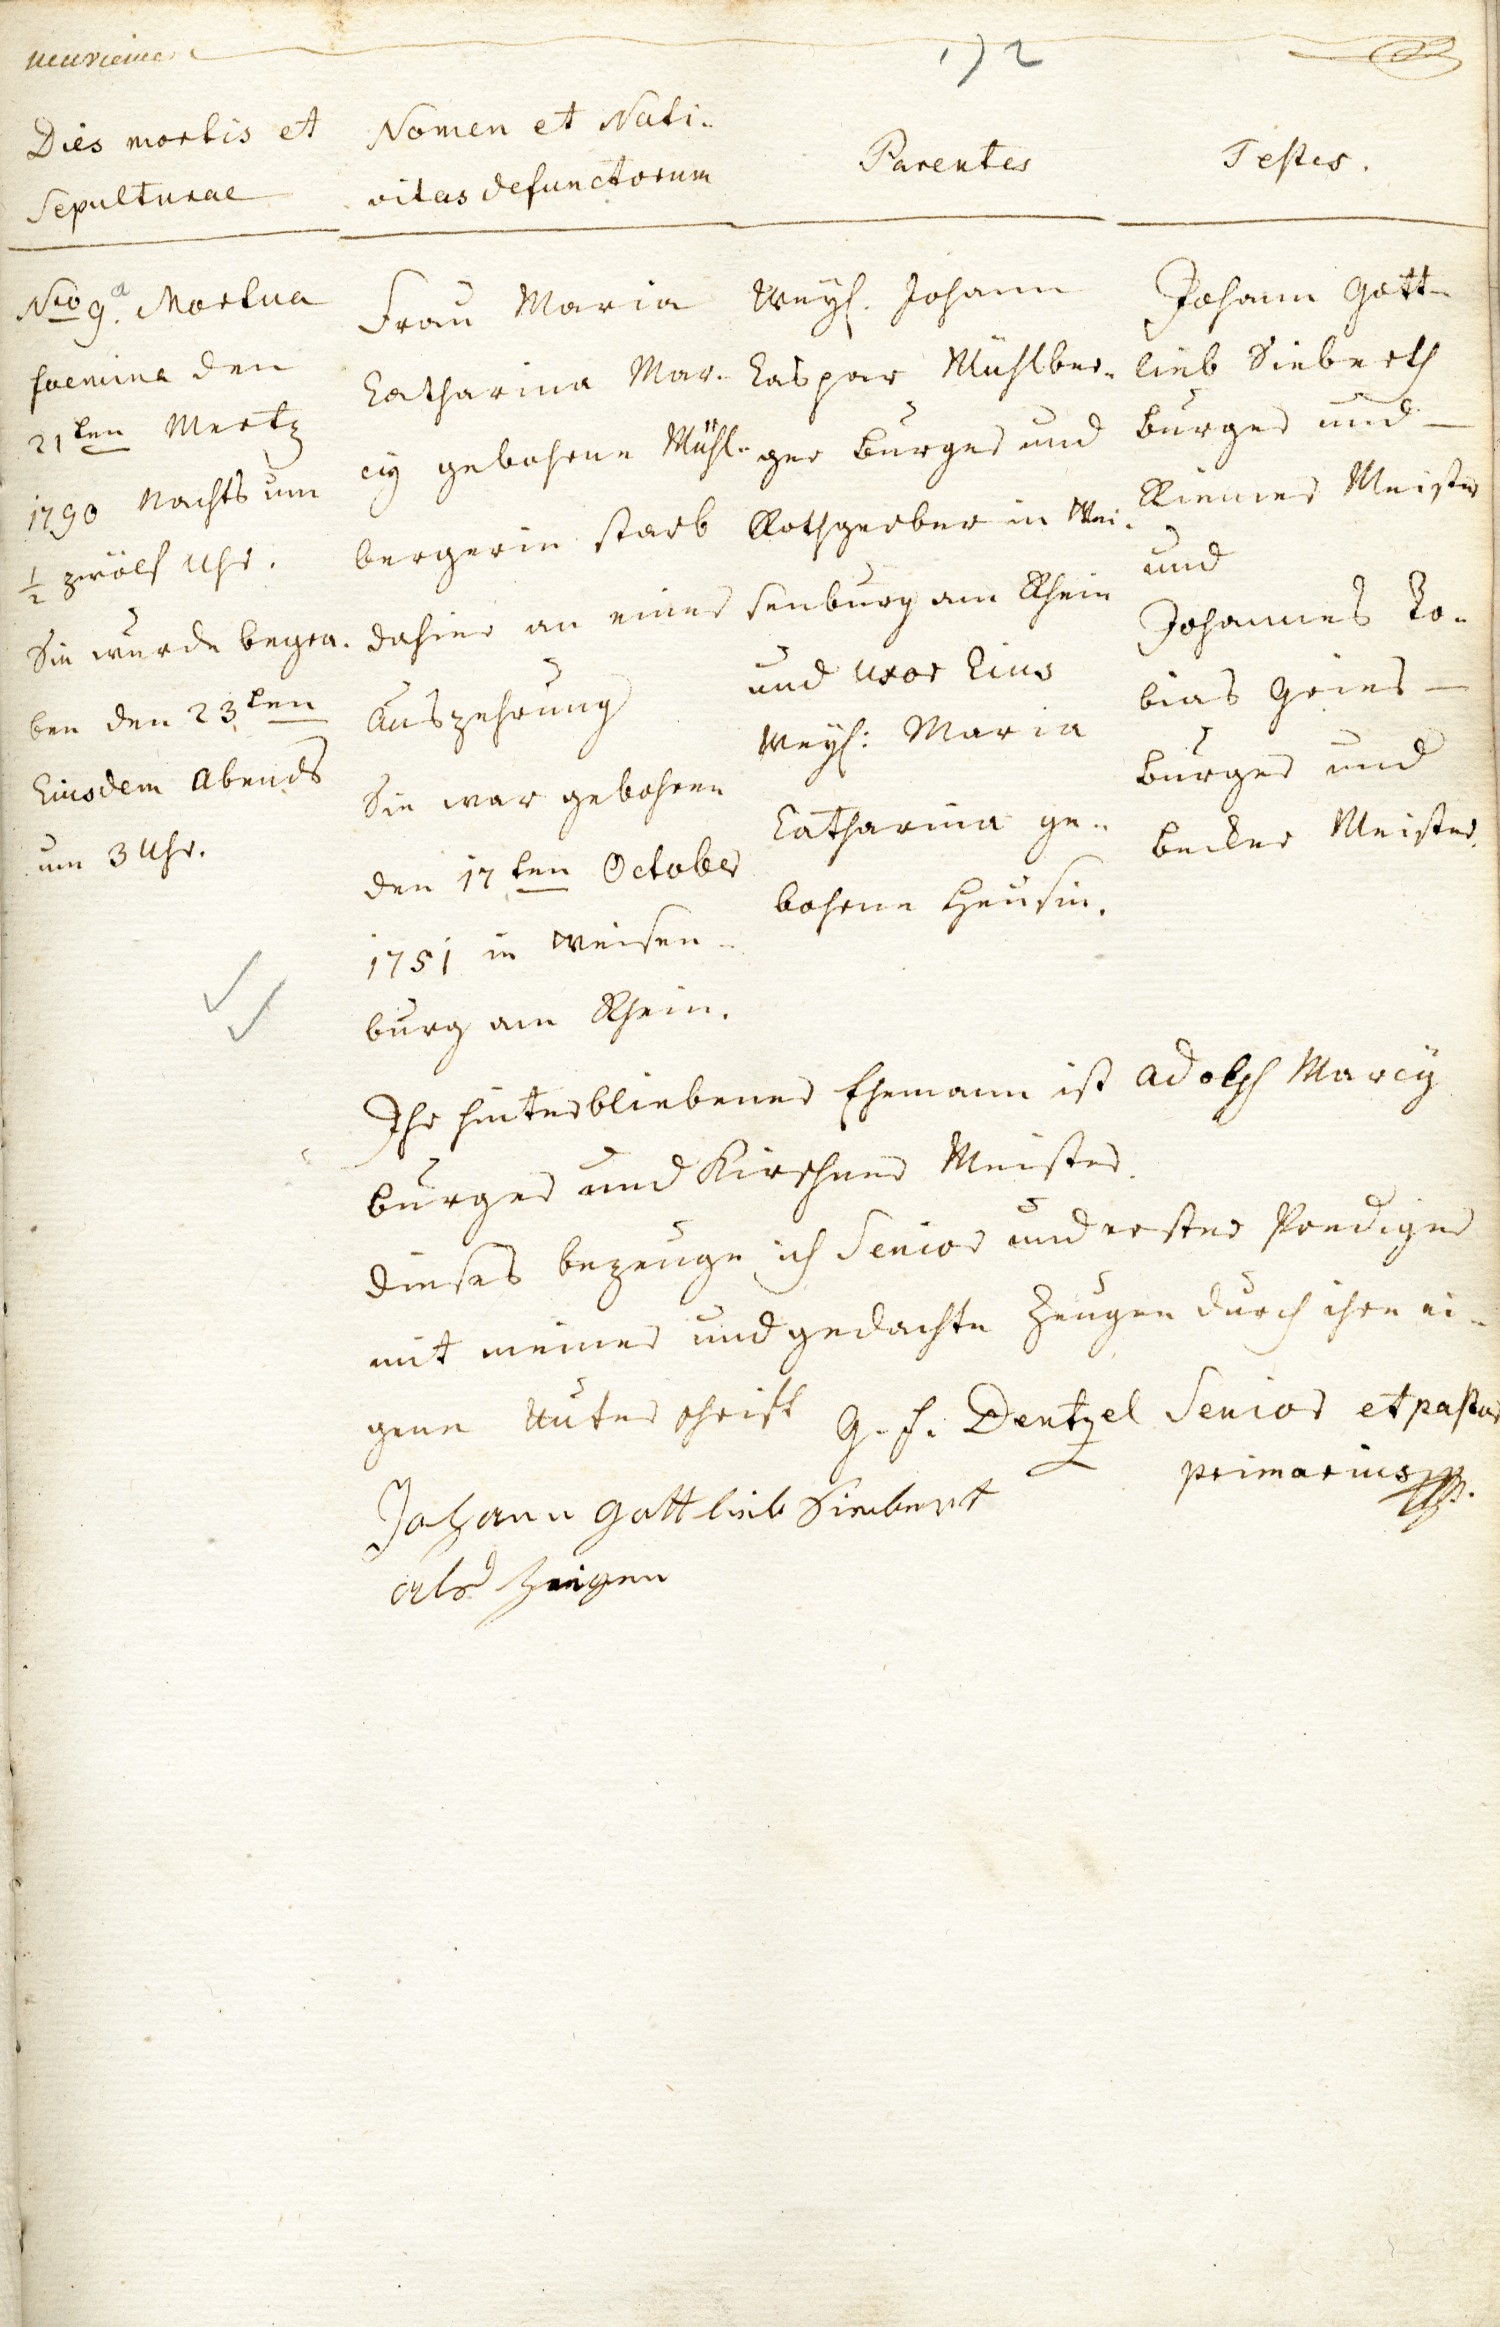 172
Dies mortis et
Sepulturae
Nomen et Nati-
vitas defunctorum
Parentes
Testes.
Nro 9. Mortua
foemina den
21ten Mertz
1790 Nachts um
1/2 zwölf Uhr.
Sie wurde begra-
ben den 23ten
Eiusdem Abends
um 3 Uhr.
Frau Maria
Catharina Mar-
cy gebohrne Mühl-
bergerin starb
dahier an einer
Auszehrung
Sie war gebohren
den 17ten October
1751 in Weisen-
burg am Rhein.
Weyl. Johann
Caspar Mühlber-
ger Burger und
Rothgerber in Wei-
senburg am Rhein
und uxor Eius
Weyl: Maria
Catharina ge-
bohrne Heusin.
Johann Gott-
lieb Sieberth
Burger und
Riemer Meister
und
Johannes To-
bias Gries
Burger und
Becker Meister.
Ihr hinterbliebener Ehemann ist Adolph Marcy
Burger und Kirschner Meister.
Dieses bezeuge ich Senior und erster Prediger
mit meiner und gedachte Zeugen durch ihre ei-
gene Unterschrift G. F. Dentzel Senior et pastor
primarius
Johann Gottlieb Siebert
als Zeigen